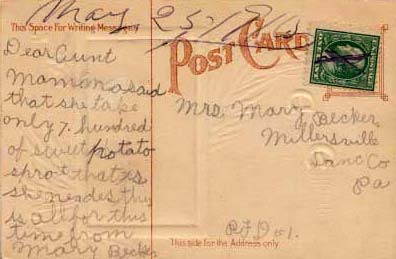 May 25, 1915
This Space For Writing Messages
POST CARD
Dear Aunt
Mamma said
that she take
only 7. hundred
of sweet potato
sprot that is
she neades this
is all for this
time from
Mary Becker
Mrs. Mary Becker
Millersville
Lanc Co
Pa
R.F.D #1.
This side for the Address only